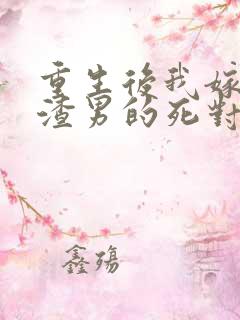 重生後我嫁
渣男的死對
鑫殤